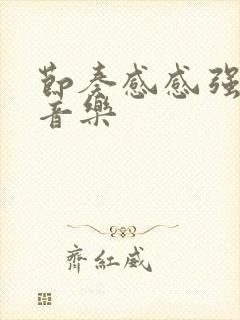 節奏感感强
音樂
齊紅威